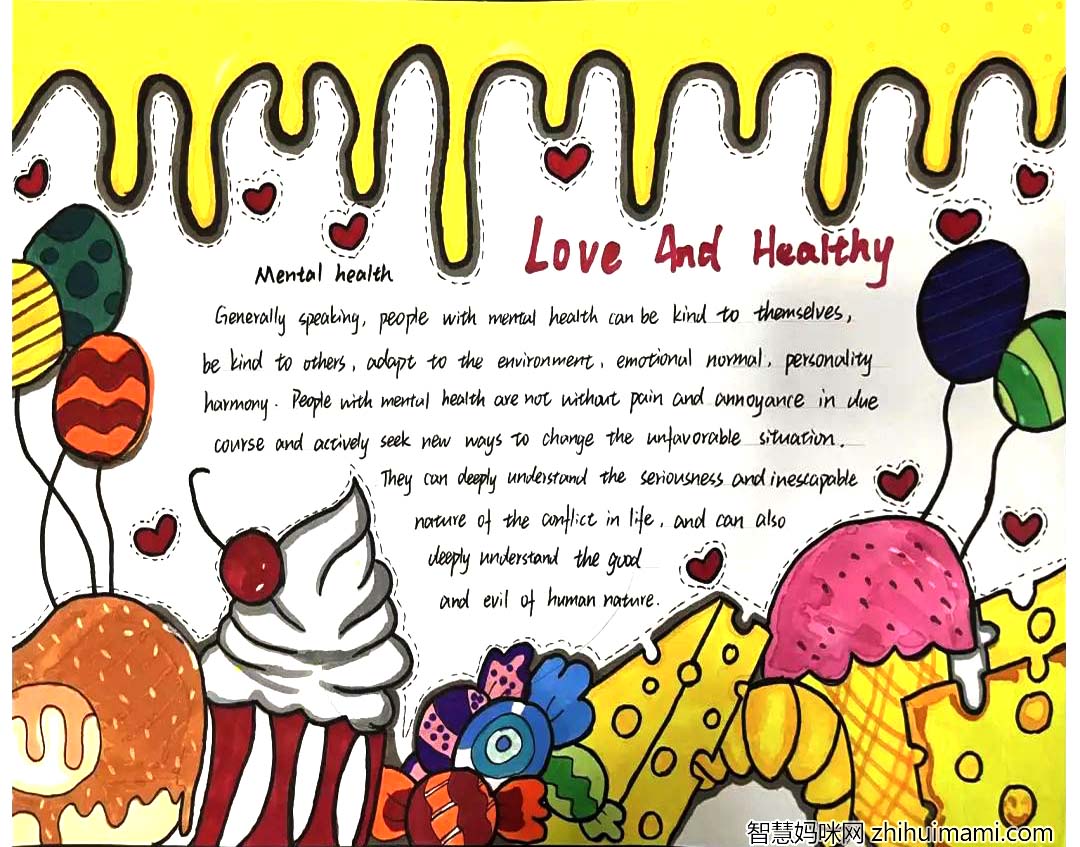 Love And Healthy
Mental health
Generally speaking, people with mental health can be kind to themselves,
be kind to others, adapt to the environment, emotional normal, personality
harmony. People with mental health are not without pain and annoyance in due
course and actively seek new ways to change the unfavorable situation.
They can deeply understand the seriousness and inescapable
nature of the conflict in life, and can also
deeply understand the good
and evil of human nature.
智慧妈咪网 zhihuimami.com